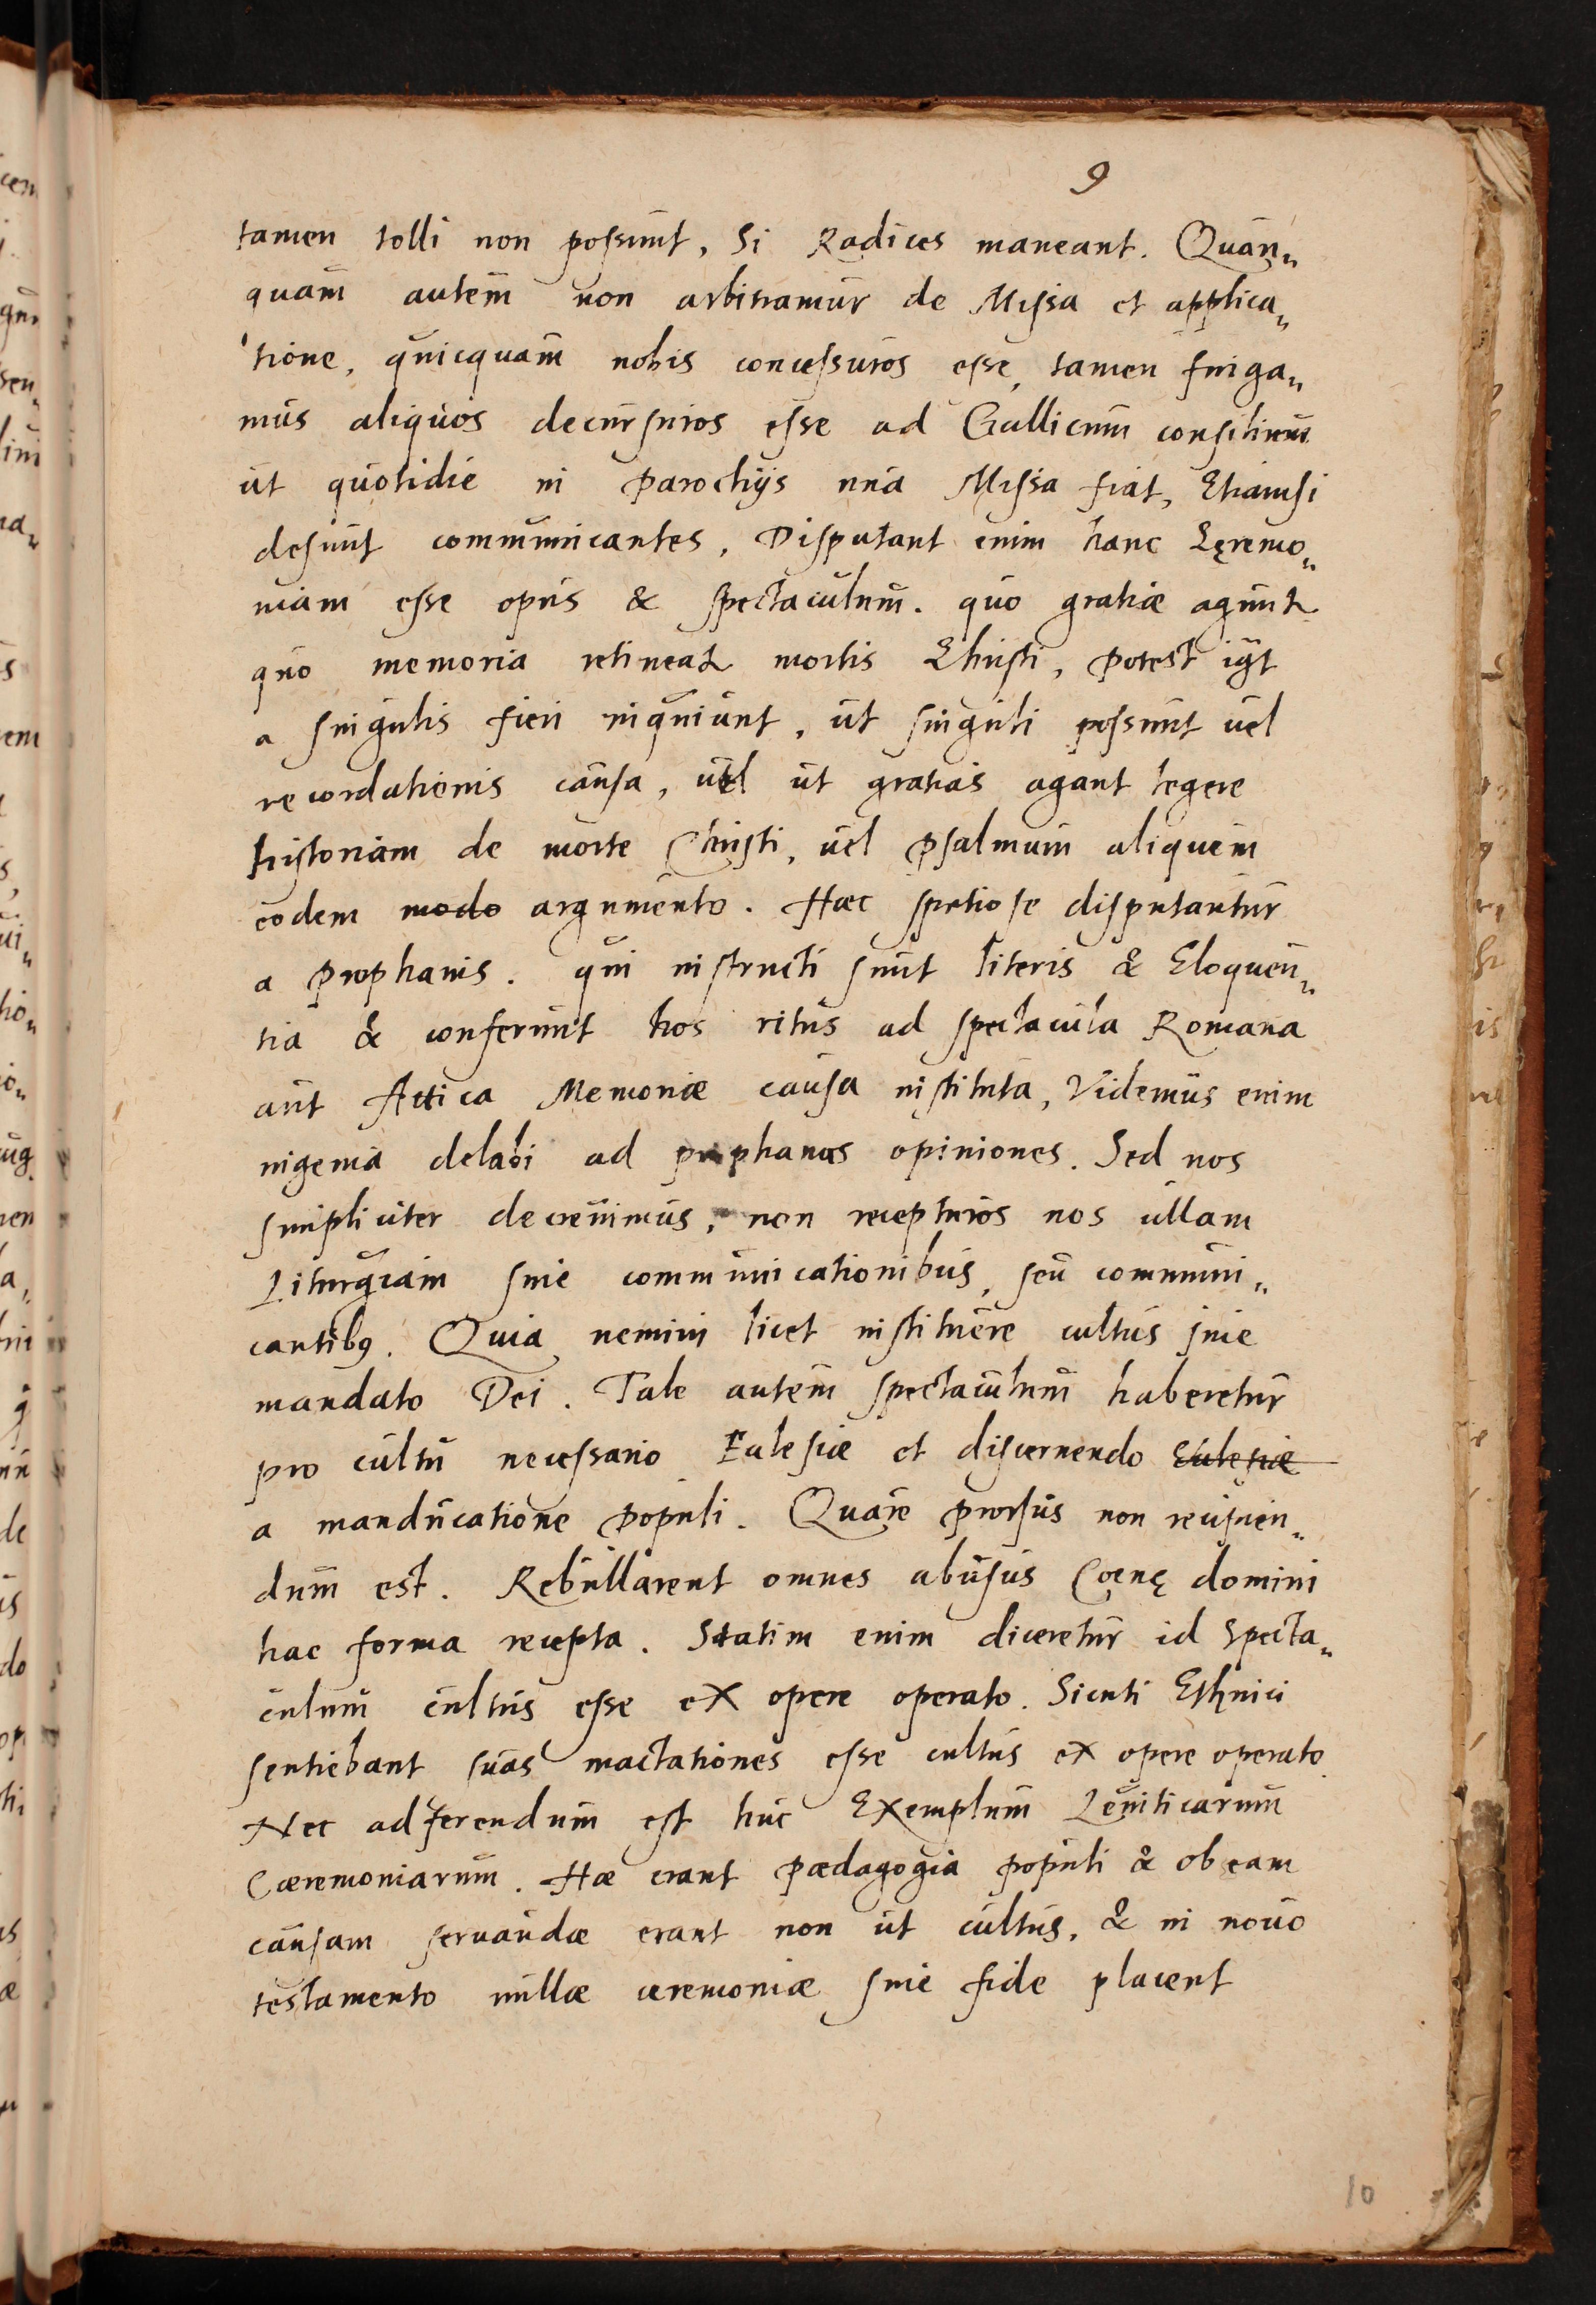 9
tamen tolli non possunt, Si Radices maneant. Quan„
quam autem non arbitramur de Missa et applica„
tione, quicquam nobis concessuros esse, tamen finga„
mus aliquos decursuros esse ad Gallicum consilium
ut quotidie in parochijs una Missa fiat, Etiamsi
desunt communicantes, Disputant enim hanc Cęremo„
niam esse opus & spectaculum. quo gratiæ agunt
quo memoria retineat mortis Christi, potest igt
a singulis fieri inquiunt, ut singuli possunt uel
recordationis causa, uel ut gratias agant legere
historiam de morte Christi, uel psalmum aliquem
eodem modo argumento. Hæc spetiose disputantur
a prophanis. qui instructi sunt literis & Eloquen„
tia & conferunt hos ritus ad spectacula Romana
aut Attica Memoriæ causa instituta, Videmus enim
ingenia delabi ad prophanas opiniones. Sed nos
simpliciter decreuimus, non recepturos nos ullam
Liturgiam sine communicationibus, seu communi„
cantibꝰ. Quia nemini licet instituere cultus sine
mandato Dei. Tale autem spectaculum haberetur
pro cultu necessario Eclesiæ et discernendo Eclesiæ
a manducatione populi. Quare prorsus non recipien„
dum est. Rebullarent omnes abusus Coenę domini
hac forma recepta. Statim enim diceretur id Specta„
culum cultus esse ex opere operato. Sicuti Ethnici
sentiebant suas mactationes esse cultus ex opere operato.
Nec adferendum est huc Exemplum Leuiticarum
Cæremoniarum. Hæ erant pædagogia populi & ob eam
causam seruandæ erant non ut cultus, & in nouo
testamento nullæ ceremoniæ sine fide placent
10